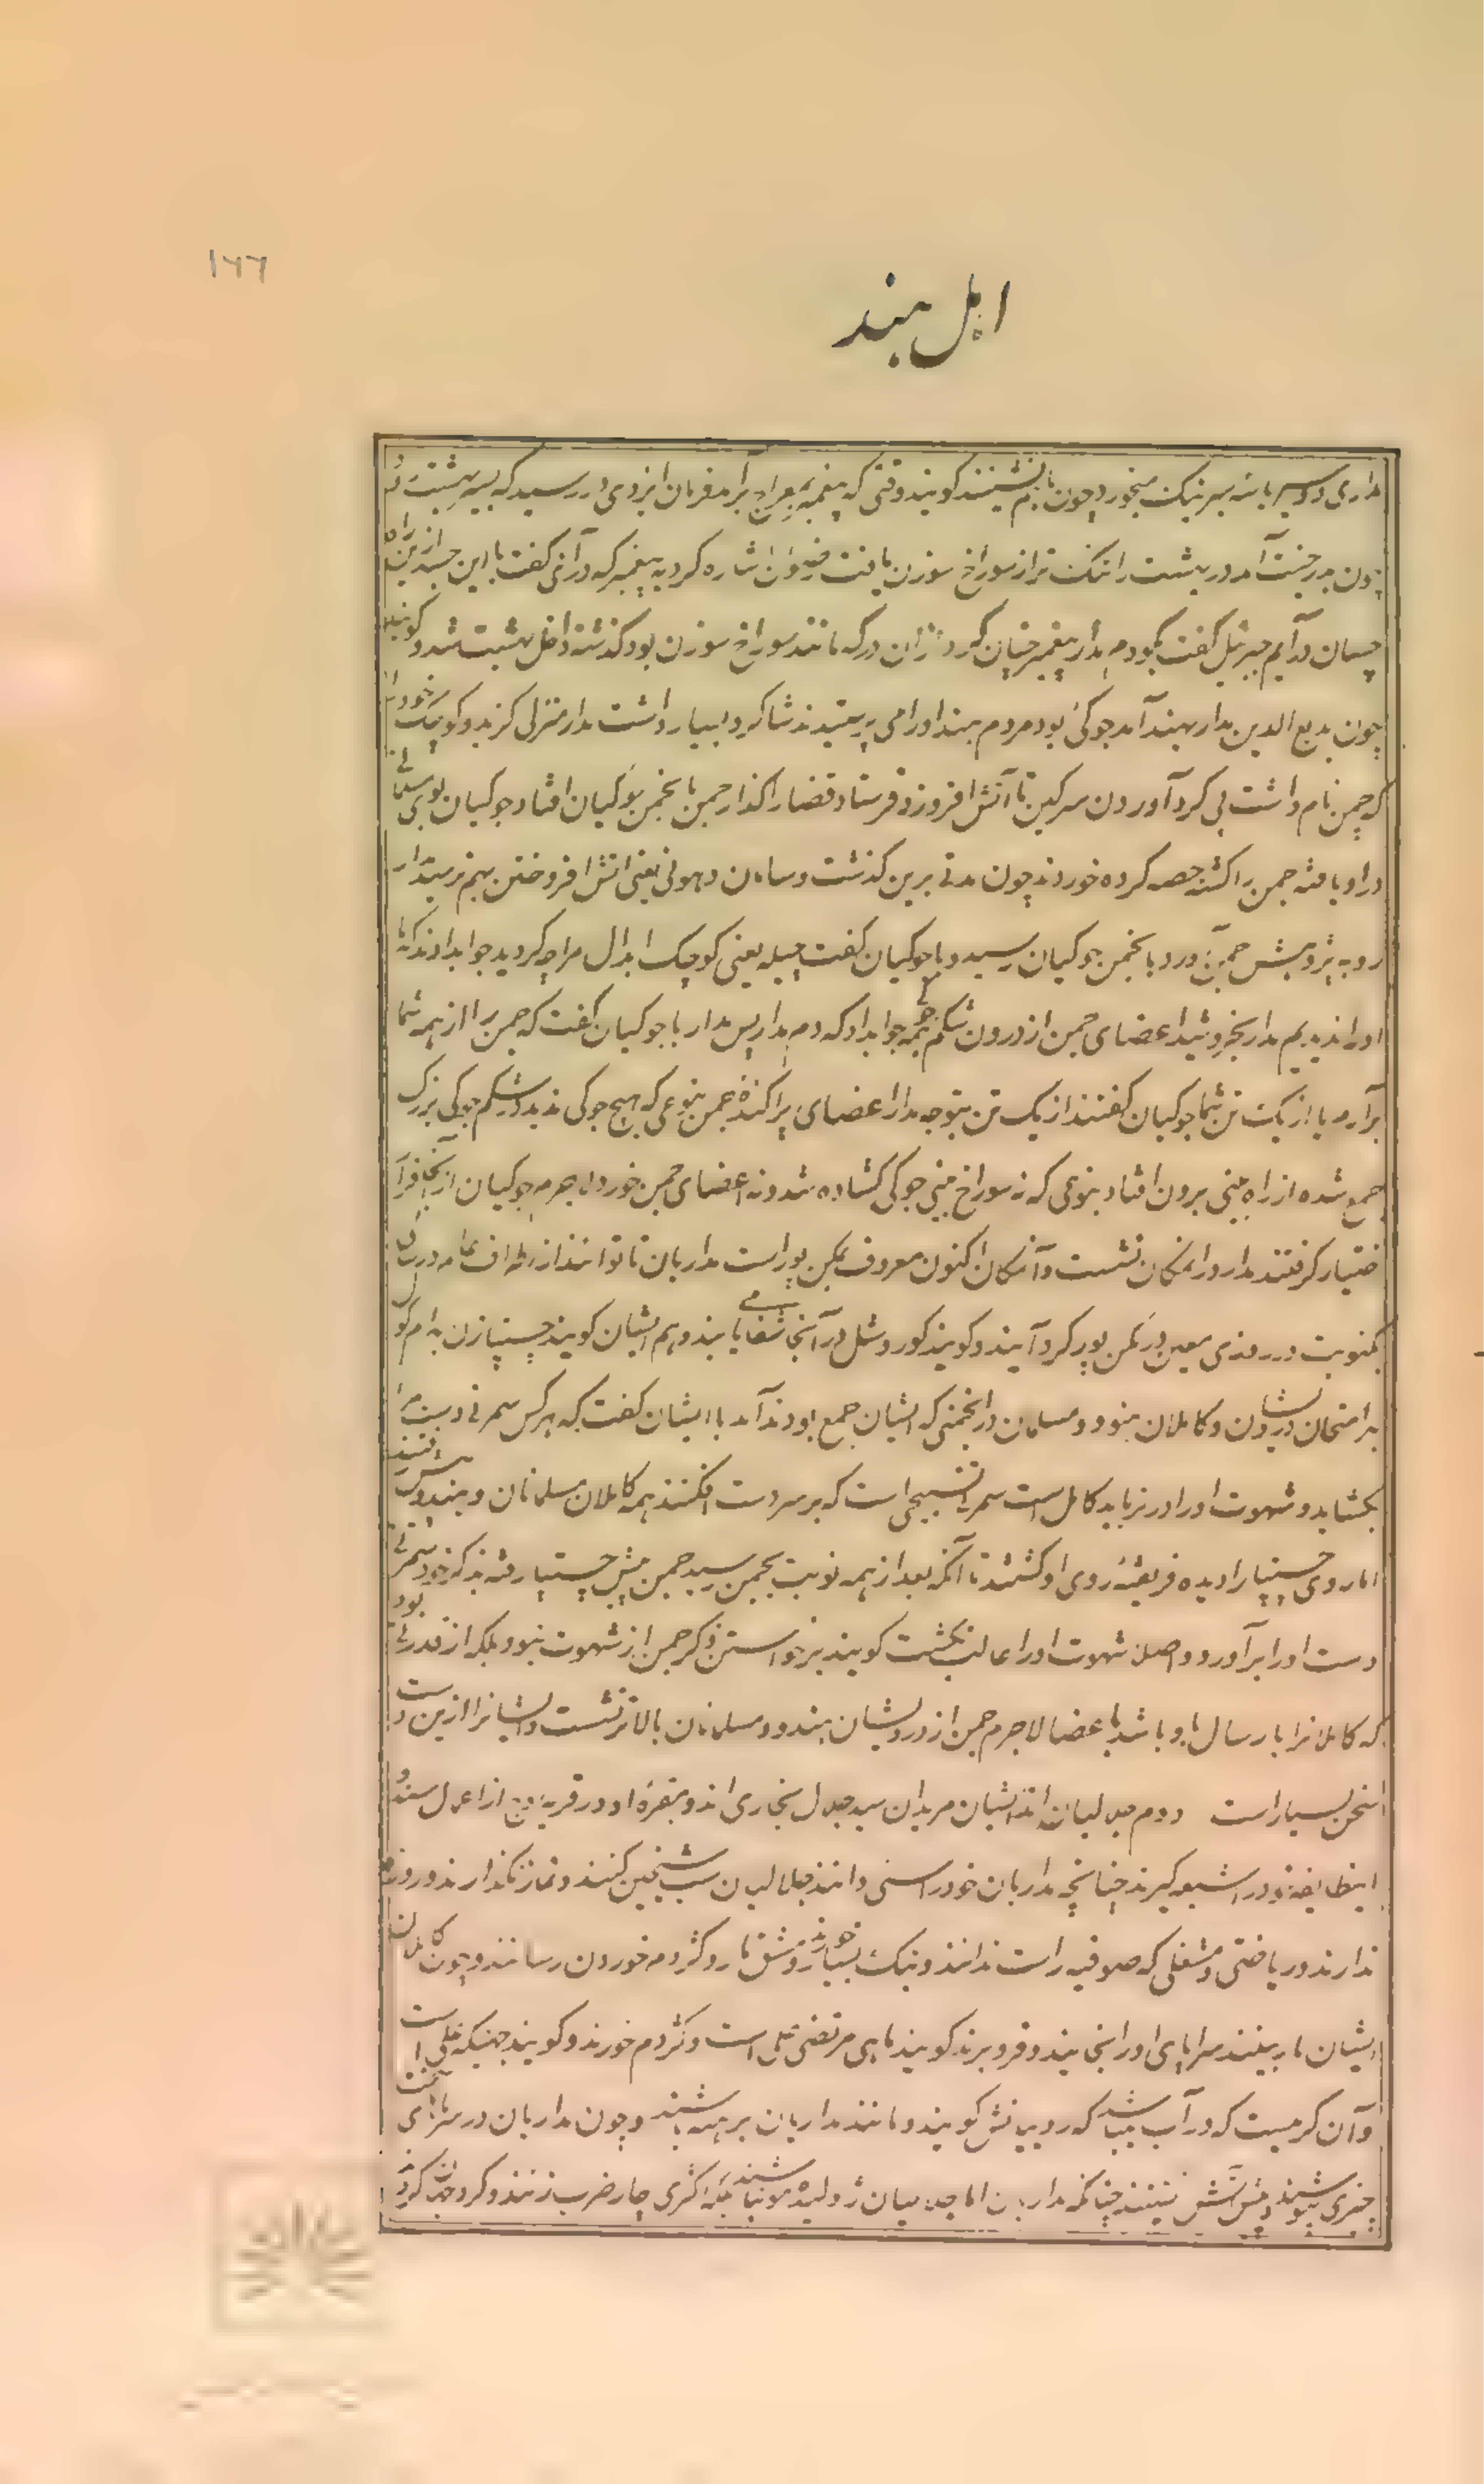 ۱۶۶
اهل هند
مداری دو سیر یا سه سیر بنک میخورد و چون با هم نشینند کویند وقتی که پیغمبر بمعراج برآمد فرمان ایزدی در رسید که بسیر بهشت رو
چون بدر جنت آمد در بهشت را تنک تر از سوراخ سوزن یافت رضوان اشاره کرد به پیغمبر که درآی گفت با این جسد ازین راه
چسان درآیم جبرئیل گفت بگو دم مدار پیغمبر چنان کرد ازان در که مانند سوراخ سوزن بود کذشته داخل بهشت شد و کویند
چون بدیع الدین مدار بهند آمد جوکی بود مردم هند او را می پرستیدند شاکرد بسیار داشت مدار منزل کزید و کوچک خود را
که چمن نام داشت پی کرد آوردن سرکین تا آتش افروزد فرستاد قضا را کذار چمن بانجمن جوکیان افتاد جوکیان بوی مسلمانی
در او یافته چمن را کشته حصه کرده خوردند چون مدتی برین کذشت و سامان دهونی یعنی آتش افروختن بهم نرسید مدار
رو به پژوهش چمن آورد و بانجمن جوکیان رسید و با جوکیان کفت چیله یعنی کوچک ابدال مرا چه کردید جواب دادند که ما
او را ندیدیم مدار بخروشید اعضای چمن از درون شکم همه جواب داد که دم مدار پس مدار با جوکیان کفت که چمن را از همه شما
برآرم یا از یک تن شما جوکیان کفتند از یک تن بتوجه مدار اعضای پراکندهٔ چمن بنوعی که هیچ جوکی ندید در شکم جوکی بزرک
جمع شده از راه بینی برون افتاد بنوعی که نه سوراخ بینی جوکی کشاده شد و نه اعضای چمن خورد لاجرم جوکیان از آنجا فرار
اختیار کرفتند مدار در آن مکان نشست و آن مکان اکنون معروف بمکن پور است مداریان تا توانند از اطراف عالم در سالی
یکنوبت در روزی معین در مکن پور کرد آیند و کویند کور و شل در آنجا شفا می یابند و هم ایشان کویند چستیپا زن به ام کول
برامتحان درویشان و کاملان هنود و مسلمان در انجمنی که ایشان جمع بودند آمد با ایشان کفت که هر کس سمرنی دست مرا
بکشاید و شهوت او را در نیاید کامل است سمرنی تسبیحی است که بر سر دست افکنند همه کاملان مسلمانان و هندو پیش رفتند
اما روی چستیپا را دیده فریفتهٔ روی او کشتند تا آنکه بعد از همه نوبت بچمن رسید چمن پیش چستیپا رفته بذکر خود سمرنی
دست او را برآورد و اصلا شهوت او را غالب نکشت کویند برخواستن ذکر چمن از شهوت نبود بلکه از قدرتی بود
که کاملانرا بارسال باد باشد باعضا لاجرم چمن از درویشان هندو و مسلمانان بالاتر نشست و ایشانرا ازین دست
سخن بسیار است دوم جلالیان اند ایشان مریدان سید جلال بخاری اند و مقبرهٔ او در قریهٔ اوچ از اعمال سند و
اینطایفه خود را شیعه کیرند چنانچه مداریان خود را سنی دانند جلالیان سب شیخین کنند و نماز نکذارند و روزه
ندارند و ریاضتی و شغلی که صوفیه راست ندانند و بنک بسیار خورند و مشق مار و کژدم خوردن رسانند و چون کاملان
ایشان مار بینند سراپای او را بخایند و فرو برند کویند ماهی مرتضی علی است و کژدم خورند و کویند جهینکه علی است
و آن کرمیست که در آب میباشد که روبیانش کویند و مانند مداریان برهنه باشند و چون مداریان در سرمای سخت
چیزی نپوشند و پیش آتش نشینند چنانکه مداریان اما جلالیان ژولیده مو نباشند بلکه اکثری چار ضرب زنند و کرد جهان کردند